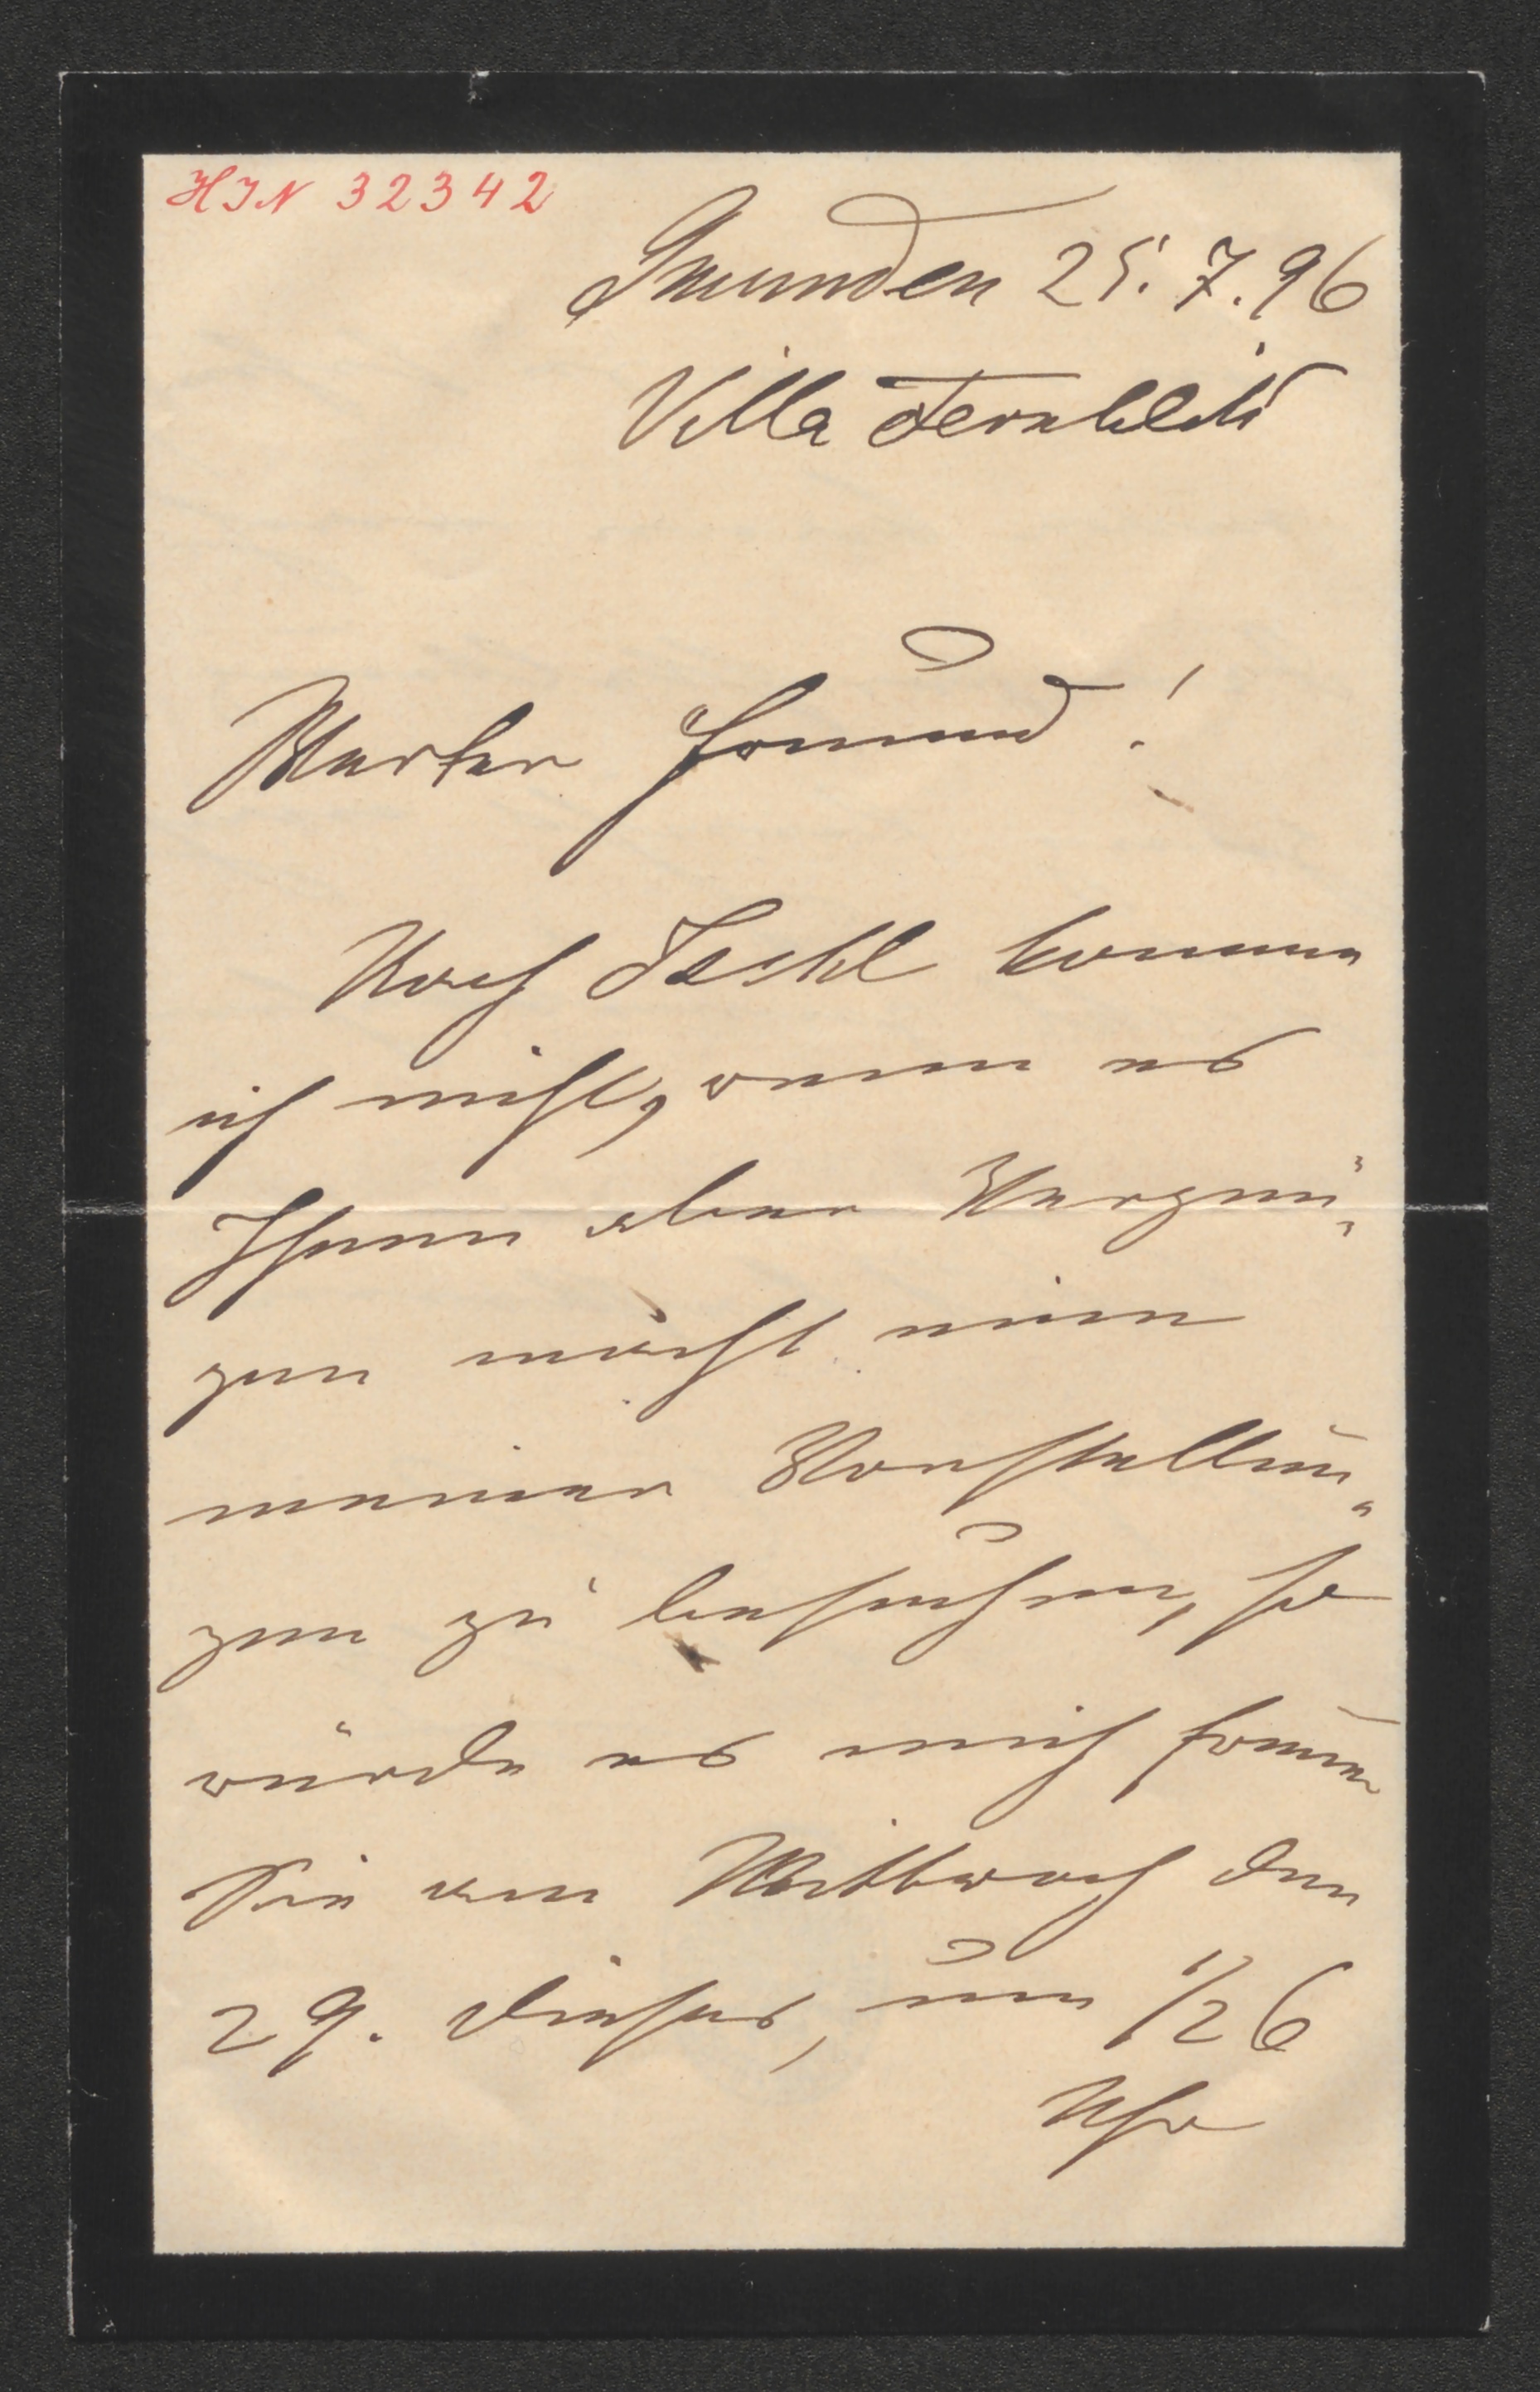 HIN 32342
Gmunden 25.7.96
Villa Fernblick
Werter Freund!
Nach Ischl komme
ich nicht, wenn es
Ihnen aber Vergnü„
gen macht eine
meiner Vorstellun„
gen zu besuchen, so
würde es mich freuen
Sie am Mittwoch den
29. dieses, um 1/2 6
Uhr